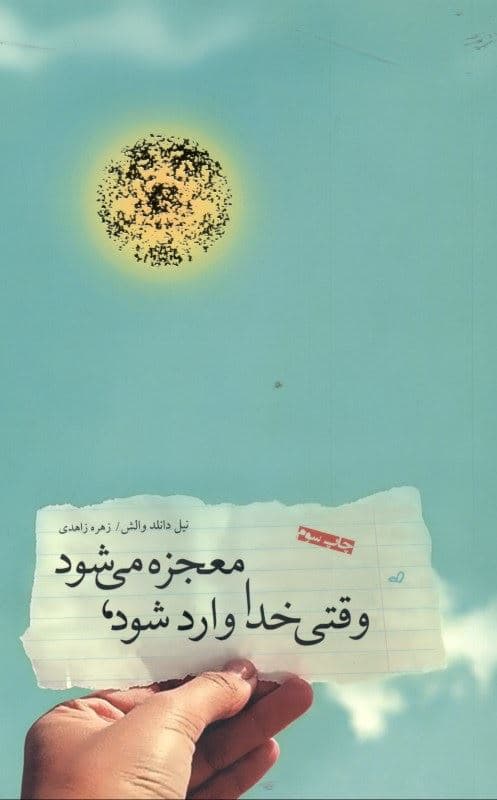 نیل دانلد والش / زهره زاهدی
چاپ سوم
معجزه می‌شود
وقتی خدا وارد شود،